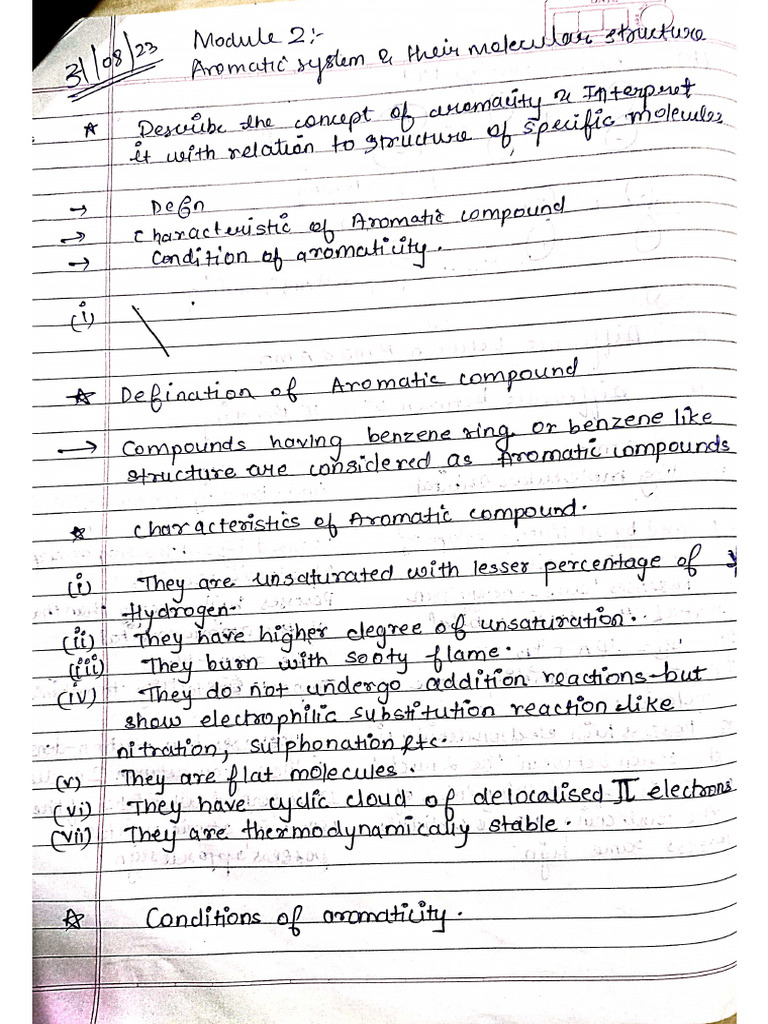 31/08/23
Module 2:-
Aromatic system & their molecular structure
☆ Describe the concept of aromacity & Interpret
it with relation to structure of specific molecules
→ Defn
→ Characteristic of Aromatic compound
→ Condition of aromaticity.
(i)
☆ Defination of Aromatic compound
→ Compounds having benzene ring or benzene like
structure are considered as Aromatic compounds
☆ Characteristics of Aromatic compound.
(i) They are unsaturated with lesser percentage of
Hydrogen.
(ii) They have higher degree of unsaturation.
(iii) They burn with sooty flame.
(iv) They do not undergo addition reactions but
show electrophilic substitution reaction like
nitration, sulphonation etc.
(v) They are flat molecules.
(vi) They have cyclic cloud of delocalised π electrons
(vii) They are thermodynamically stable.
☆ Conditions of aromaticity.